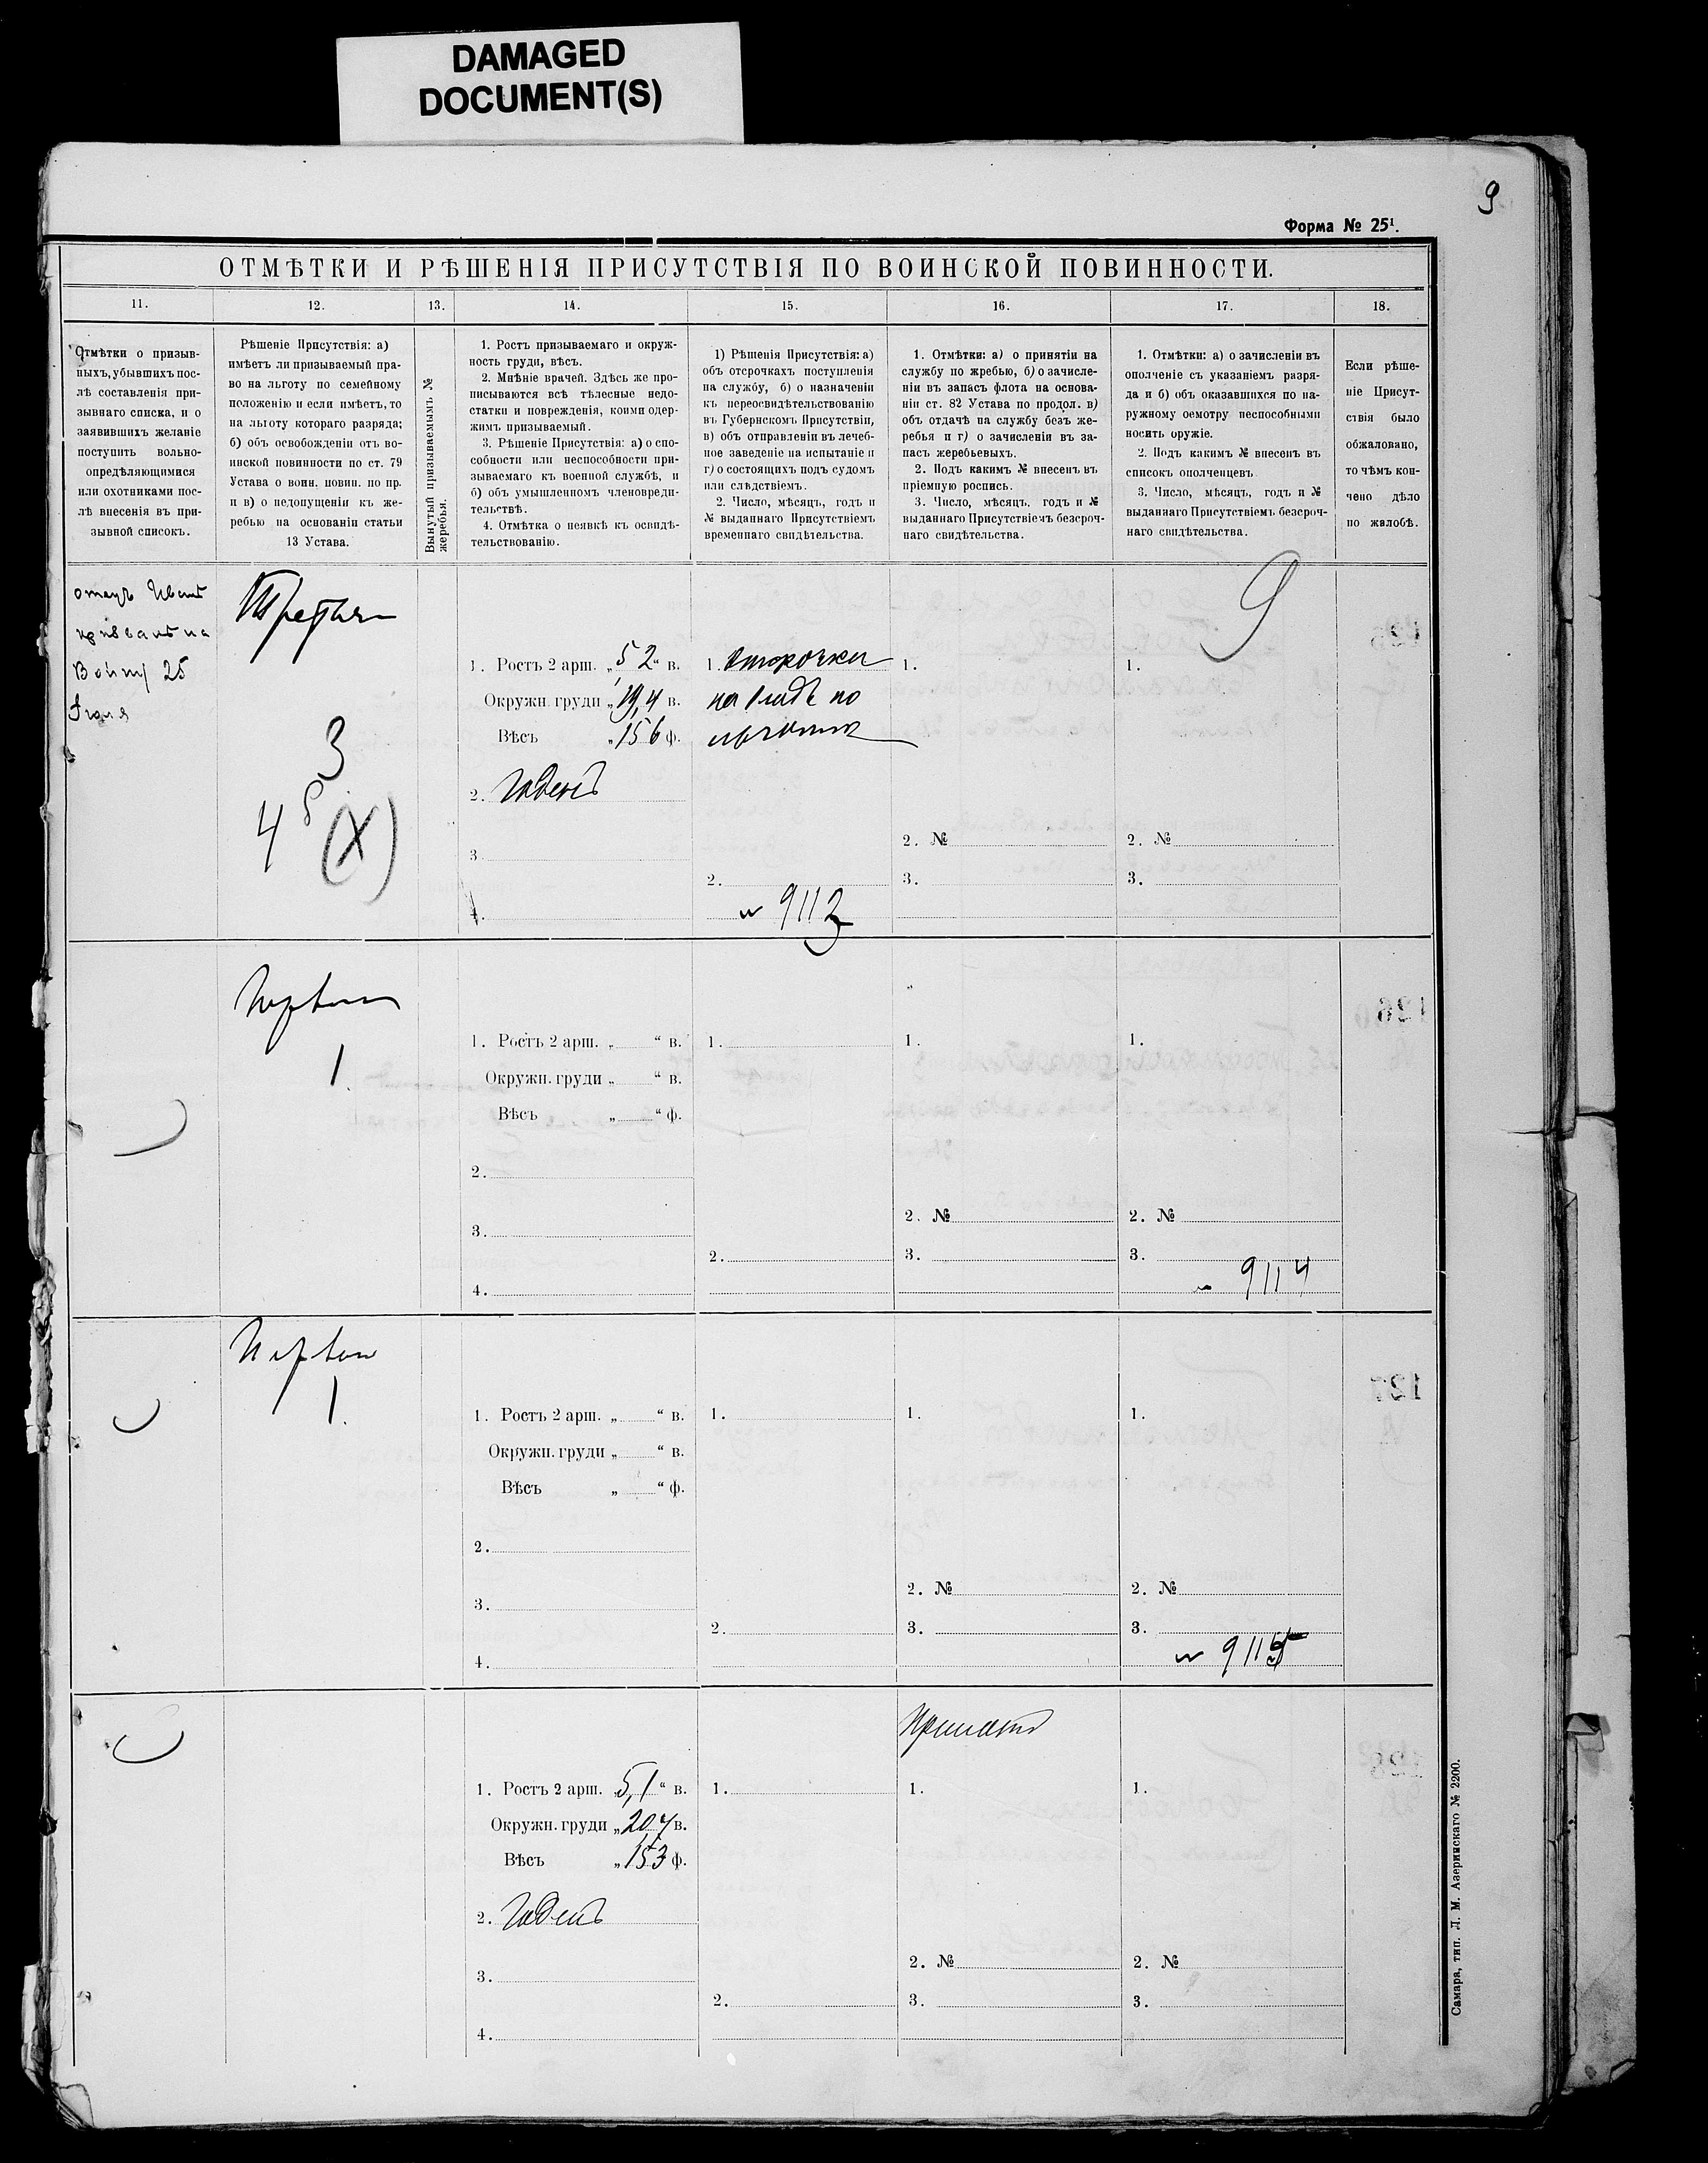 DAMAGED
DOCUMENT(S)
9
Форма № 25¹.
ОТМѢТКИ И РѢШЕНІЯ ПРИСУТСТВІЯ ПО ВОИНСКОЙ ПОВИННОСТИ.
11.
12.
13.
14.
15.
16.
17.
18.
Отмѣтки о призыв-
ныхъ, убывшихъ пос-
лѣ составленія при-
зывнаго списка, и о
заявившихъ желаніе
поступить вольно-
опредѣляющимися
или охотниками пос-
лѣ внесенія въ при-
зывной списокъ.
Рѣшеніе Присутствія: а)
имѣетъ ли призываемый пра-
во на льготу по семейному
положенію и если имѣетъ, то
на льготу котораго разряда;
б) объ освобожденіи отъ во-
инской повинности по ст. 79
Устава о воин. повин. по пр.
и в) о недопущеніи къ же-
ребью на основаніи статьи
13 Устава.
Вынутый призываемымъ №
жеребья.
1. Ростъ призываемаго и окруж-
ность груди, вѣсъ.
2. Мнѣніе врачей. Здѣсь же про-
писываются всѣ тѣлесные недо-
статки и поврежденія, коими одер-
жимъ призываемый.
3. Рѣшеніе Присутствія: а) о спо-
собности или неспособности при-
зываемаго къ военной службѣ, и
б) объ умышленномъ членовреди-
тельствѣ.
4. Отмѣтка о неявкѣ къ освидѣ-
тельствованію.
1) Рѣшенія Присутствія: а)
объ отсрочкахъ поступленія
на службу, б) о назначеніи
къ переосвидѣтельствованію
въ Губернскомъ Присутствіи,
в) объ отправленіи въ лечеб-
ное заведеніе на испытаніе и
г) о состоящихъ подъ судомъ
или слѣдствіемъ.
2. Число, мѣсяцъ, годъ и
№ выданнаго Присутствіемъ
временнаго свидѣтельства.
1. Отмѣтки: а) о принятіи на
службу по жребью, б) о зачисле-
ніи въ запасъ флота на основа-
ніи ст. 82 Устава по продол. в)
объ отдачѣ на службу безъ же-
ребья и г) о зачисленіи въ за-
пасъ жеребьевыхъ.
2. Подъ какимъ № внесенъ въ
пріемную роспись.
3. Число, мѣсяцъ, годъ и №
выданнаго Присутствіемъ безсроч-
наго свидѣтельства.
1. Отмѣтки: а) о зачисленіи въ
ополченіе съ указаніемъ разря-
да и б) объ оказавшихся по на-
ружному осмотру неспособными
носить оружіе.
2. Подъ какимъ № внесенъ въ
списокъ ополченцевъ.
3. Число, мѣсяцъ, годъ и №
выданнаго Присутствіемъ безсроч-
наго свидѣтельства.
Если рѣше-
ніе Присут-
ствія было
обжаловано,
то чѣмъ кон-
чено дѣло
по жалобѣ.
отецъ
на
25
Третьяго
3
4
(X)
1. Ростъ 2 арш. „5 2“ в.
Окружн. груди „19,4 в.
Вѣсъ „156 ф.
2. Годенъ
3.
4.
1. Отсрочка
на по
2.
№ 9113
1.
2. №
3.
9
1.
2. №
3.
Первого
1.
1. Ростъ 2 арш. „ “ в.
Окружн. груди „ “ в.
Вѣсъ „ “ ф.
2.
3.
4.
1.
2.
1.
2. №
3.
1.
2. №
3.
№ 9114
Первого
1.
1. Ростъ 2 арш. „ “ в.
Окружн. груди „ “ в.
Вѣсъ „ “ ф.
2.
3.
4.
1.
2.
1.
2. №
3.
1.
2. №
3.
№ 9115
1. Ростъ 2 арш. „5,1“ в.
Окружн. груди „20,4 в.
Вѣсъ „153 ф.
2. Годенъ
3.
4.
1.
2.
Принятъ
1.
2. №
3.
1.
2. №
3.
Самара, тип. Л. М. Азеринскаго № 2200.